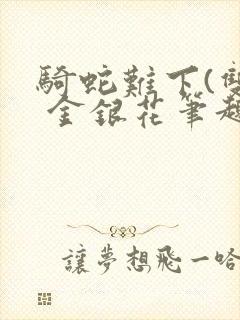 騎蛇難下(雙
金銀花筆趣
讓夢想飛一哈